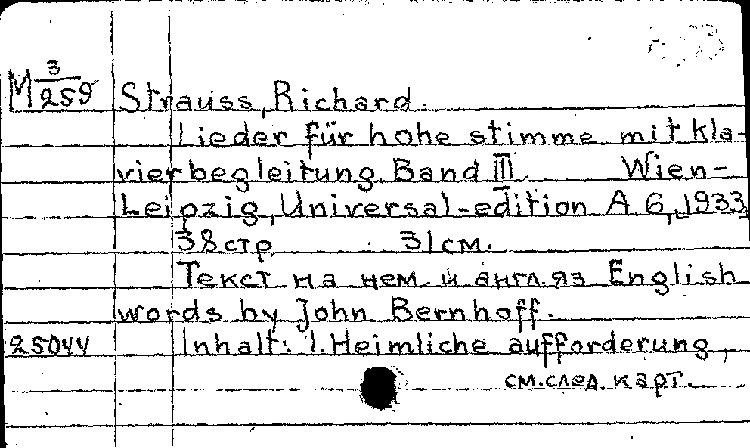 М 3/259 Strauss, Richard.
Lieder für hohe stimme mit kla-
vierbegleitung. Band III. Wien-
Leipzig, Universal-edition A 6, 1933,
38 стр 31 см.
Текст на нем. и англ. яз English
words by John Bernhoff.
25044 Inhalt: 1. Heimliche aufforderung,
см. след. карт.